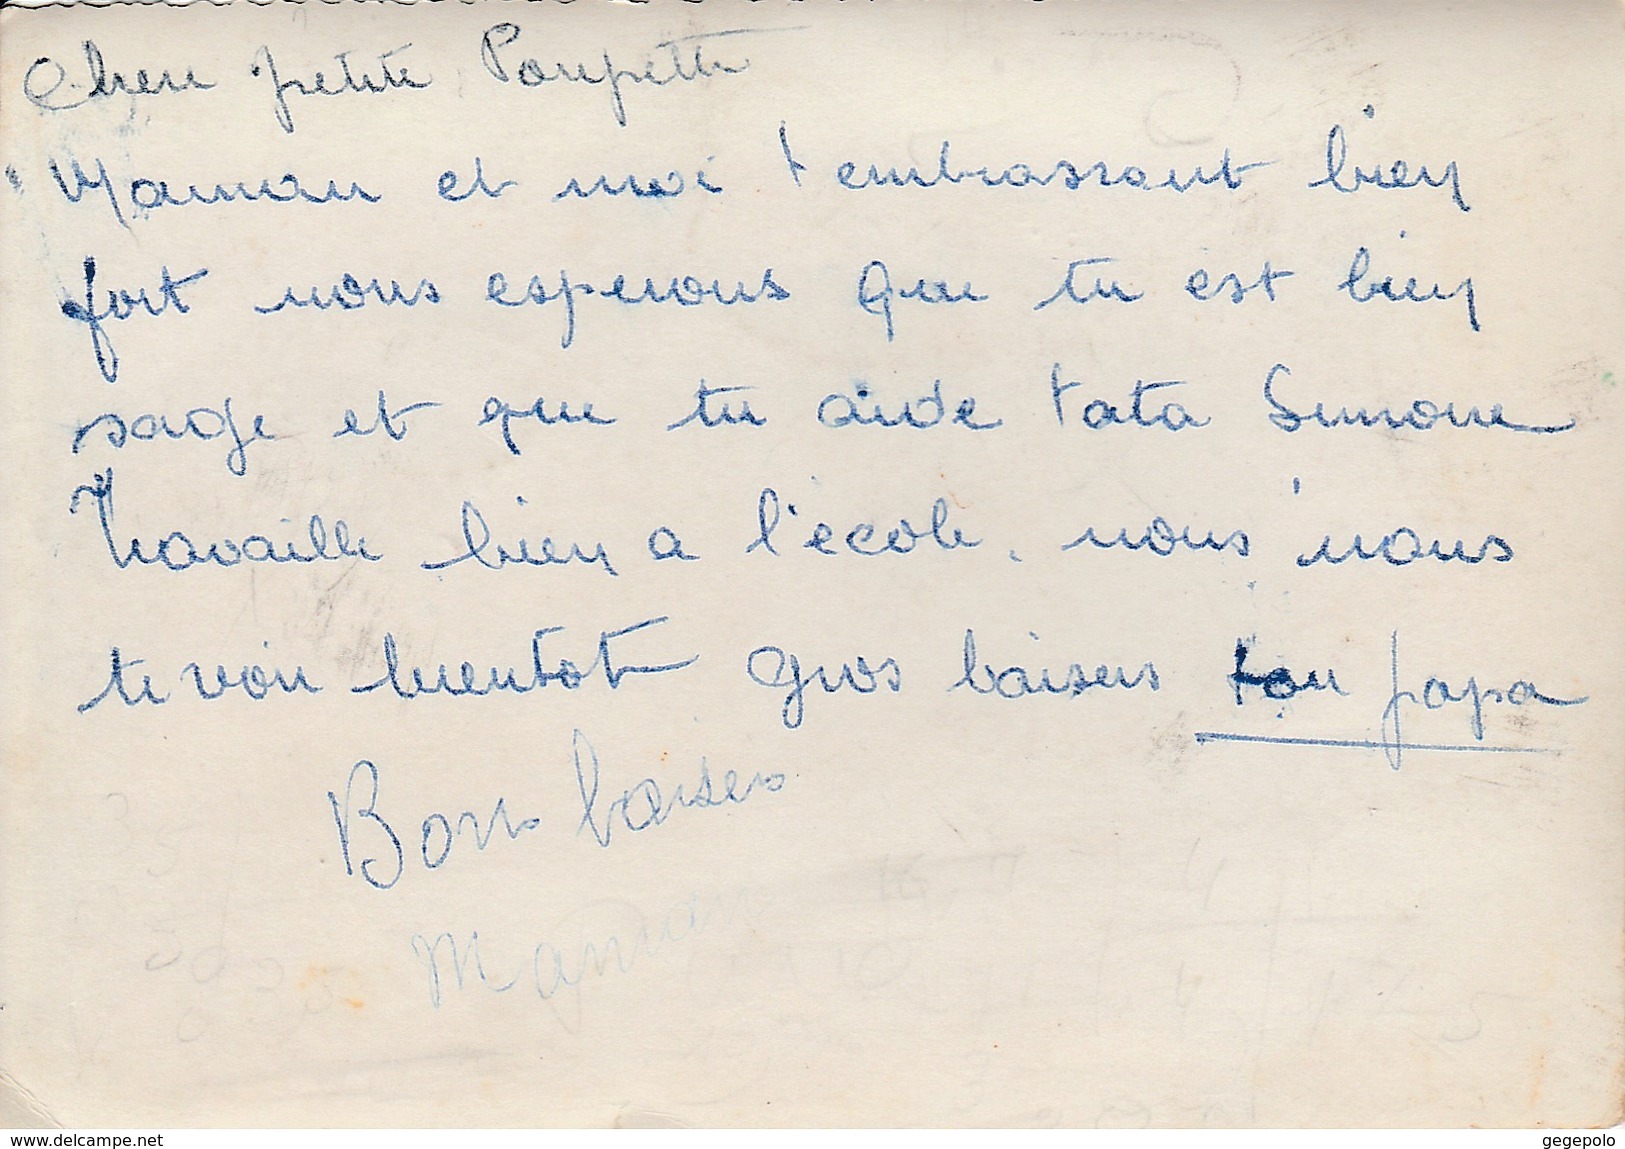 Chere petite Poupette
Maman et moi t'embrassont bien
fort nous esperons que tu est bien
sage et que tu aide tata Simone
Travaille bien a l'école. nous nous
te voir bientot Gros baisers ton papa
Bons baisers
Maman
www.delcampe.net
gegepolo